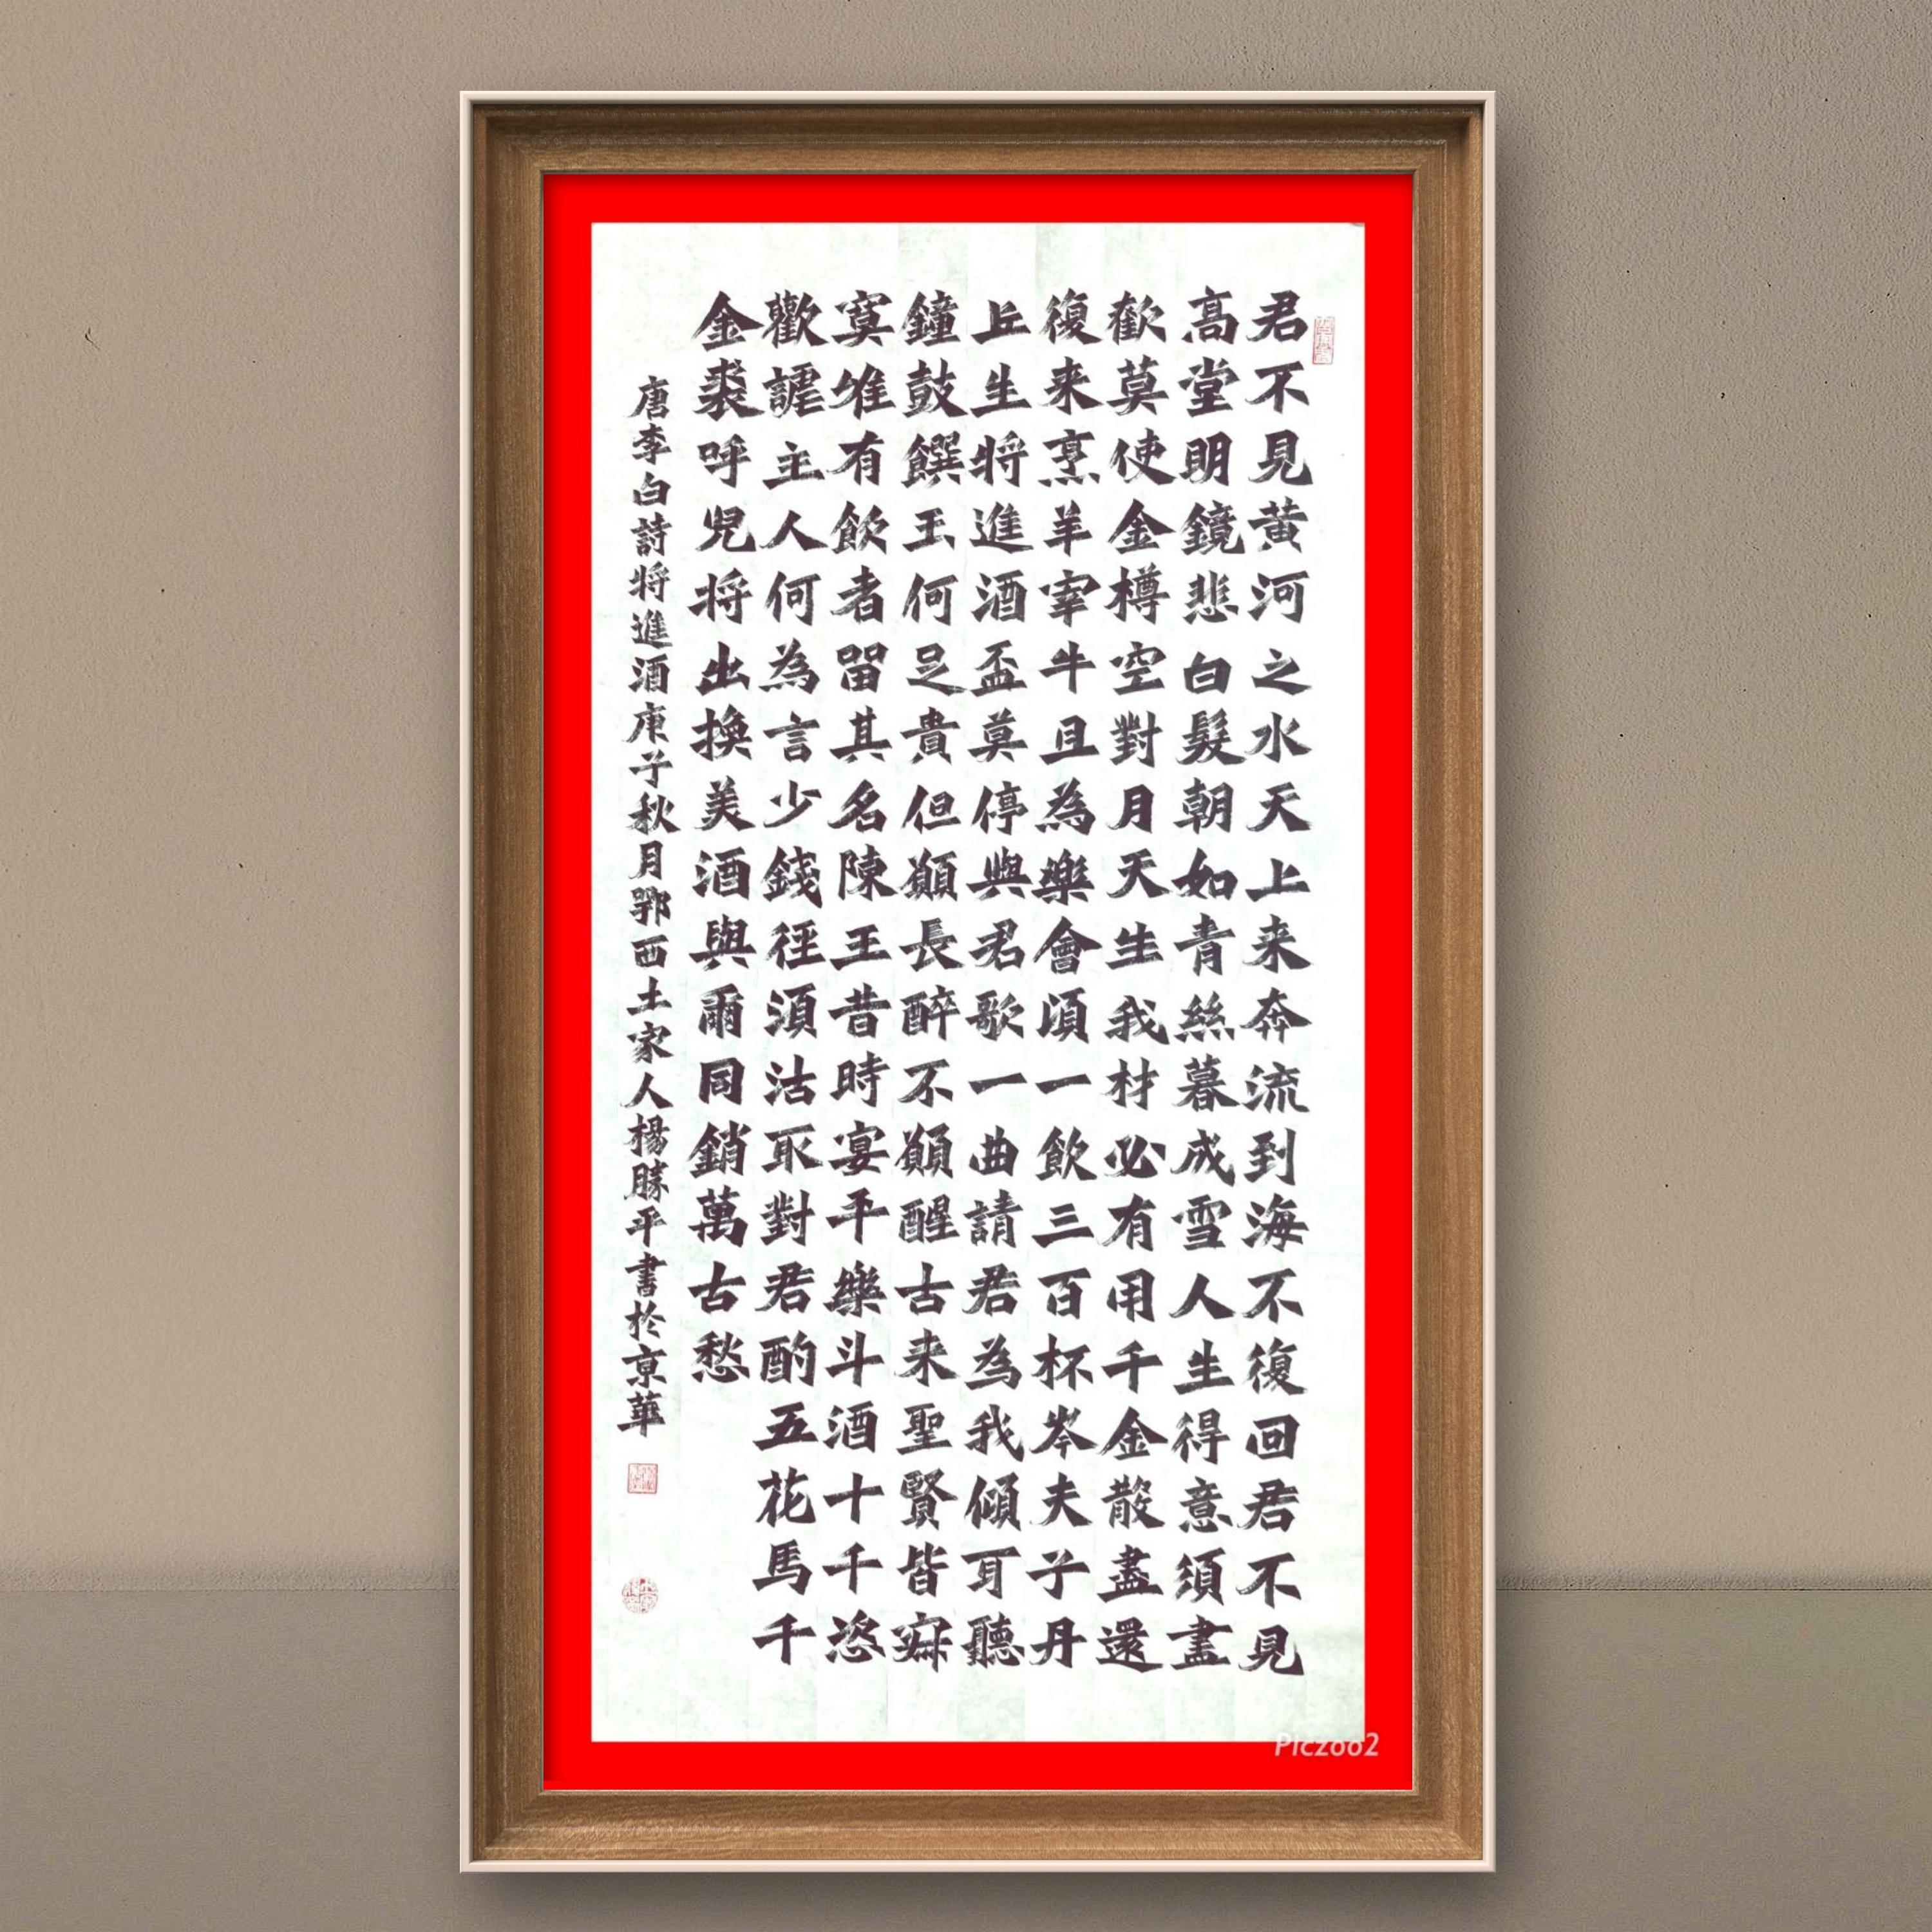 君不見黃河之水天上来奔流到海不復回君不見
高堂明鏡悲白髮朝如青絲暮成雪人生得意須盡
歡莫使金樽空對月天生我材必有用千金散盡還
復来烹羊宰牛且為樂會須一飲三百杯岑夫子丹
丘生將進酒盃莫停與君歌一曲請君為我傾耳聽
鐘鼓饌玉何足貴但願長醉不願醒古来聖賢皆寂
寞唯有飲者留其名陳王昔時宴平樂斗酒十千恣
歡謔主人何為言少錢徑須沽取對君酌五花馬千
金裘呼兒将出換美酒與爾同銷萬古愁
唐李白詩将進酒庚子秋月鄂西土家人楊勝平書於京華
Piczoo2